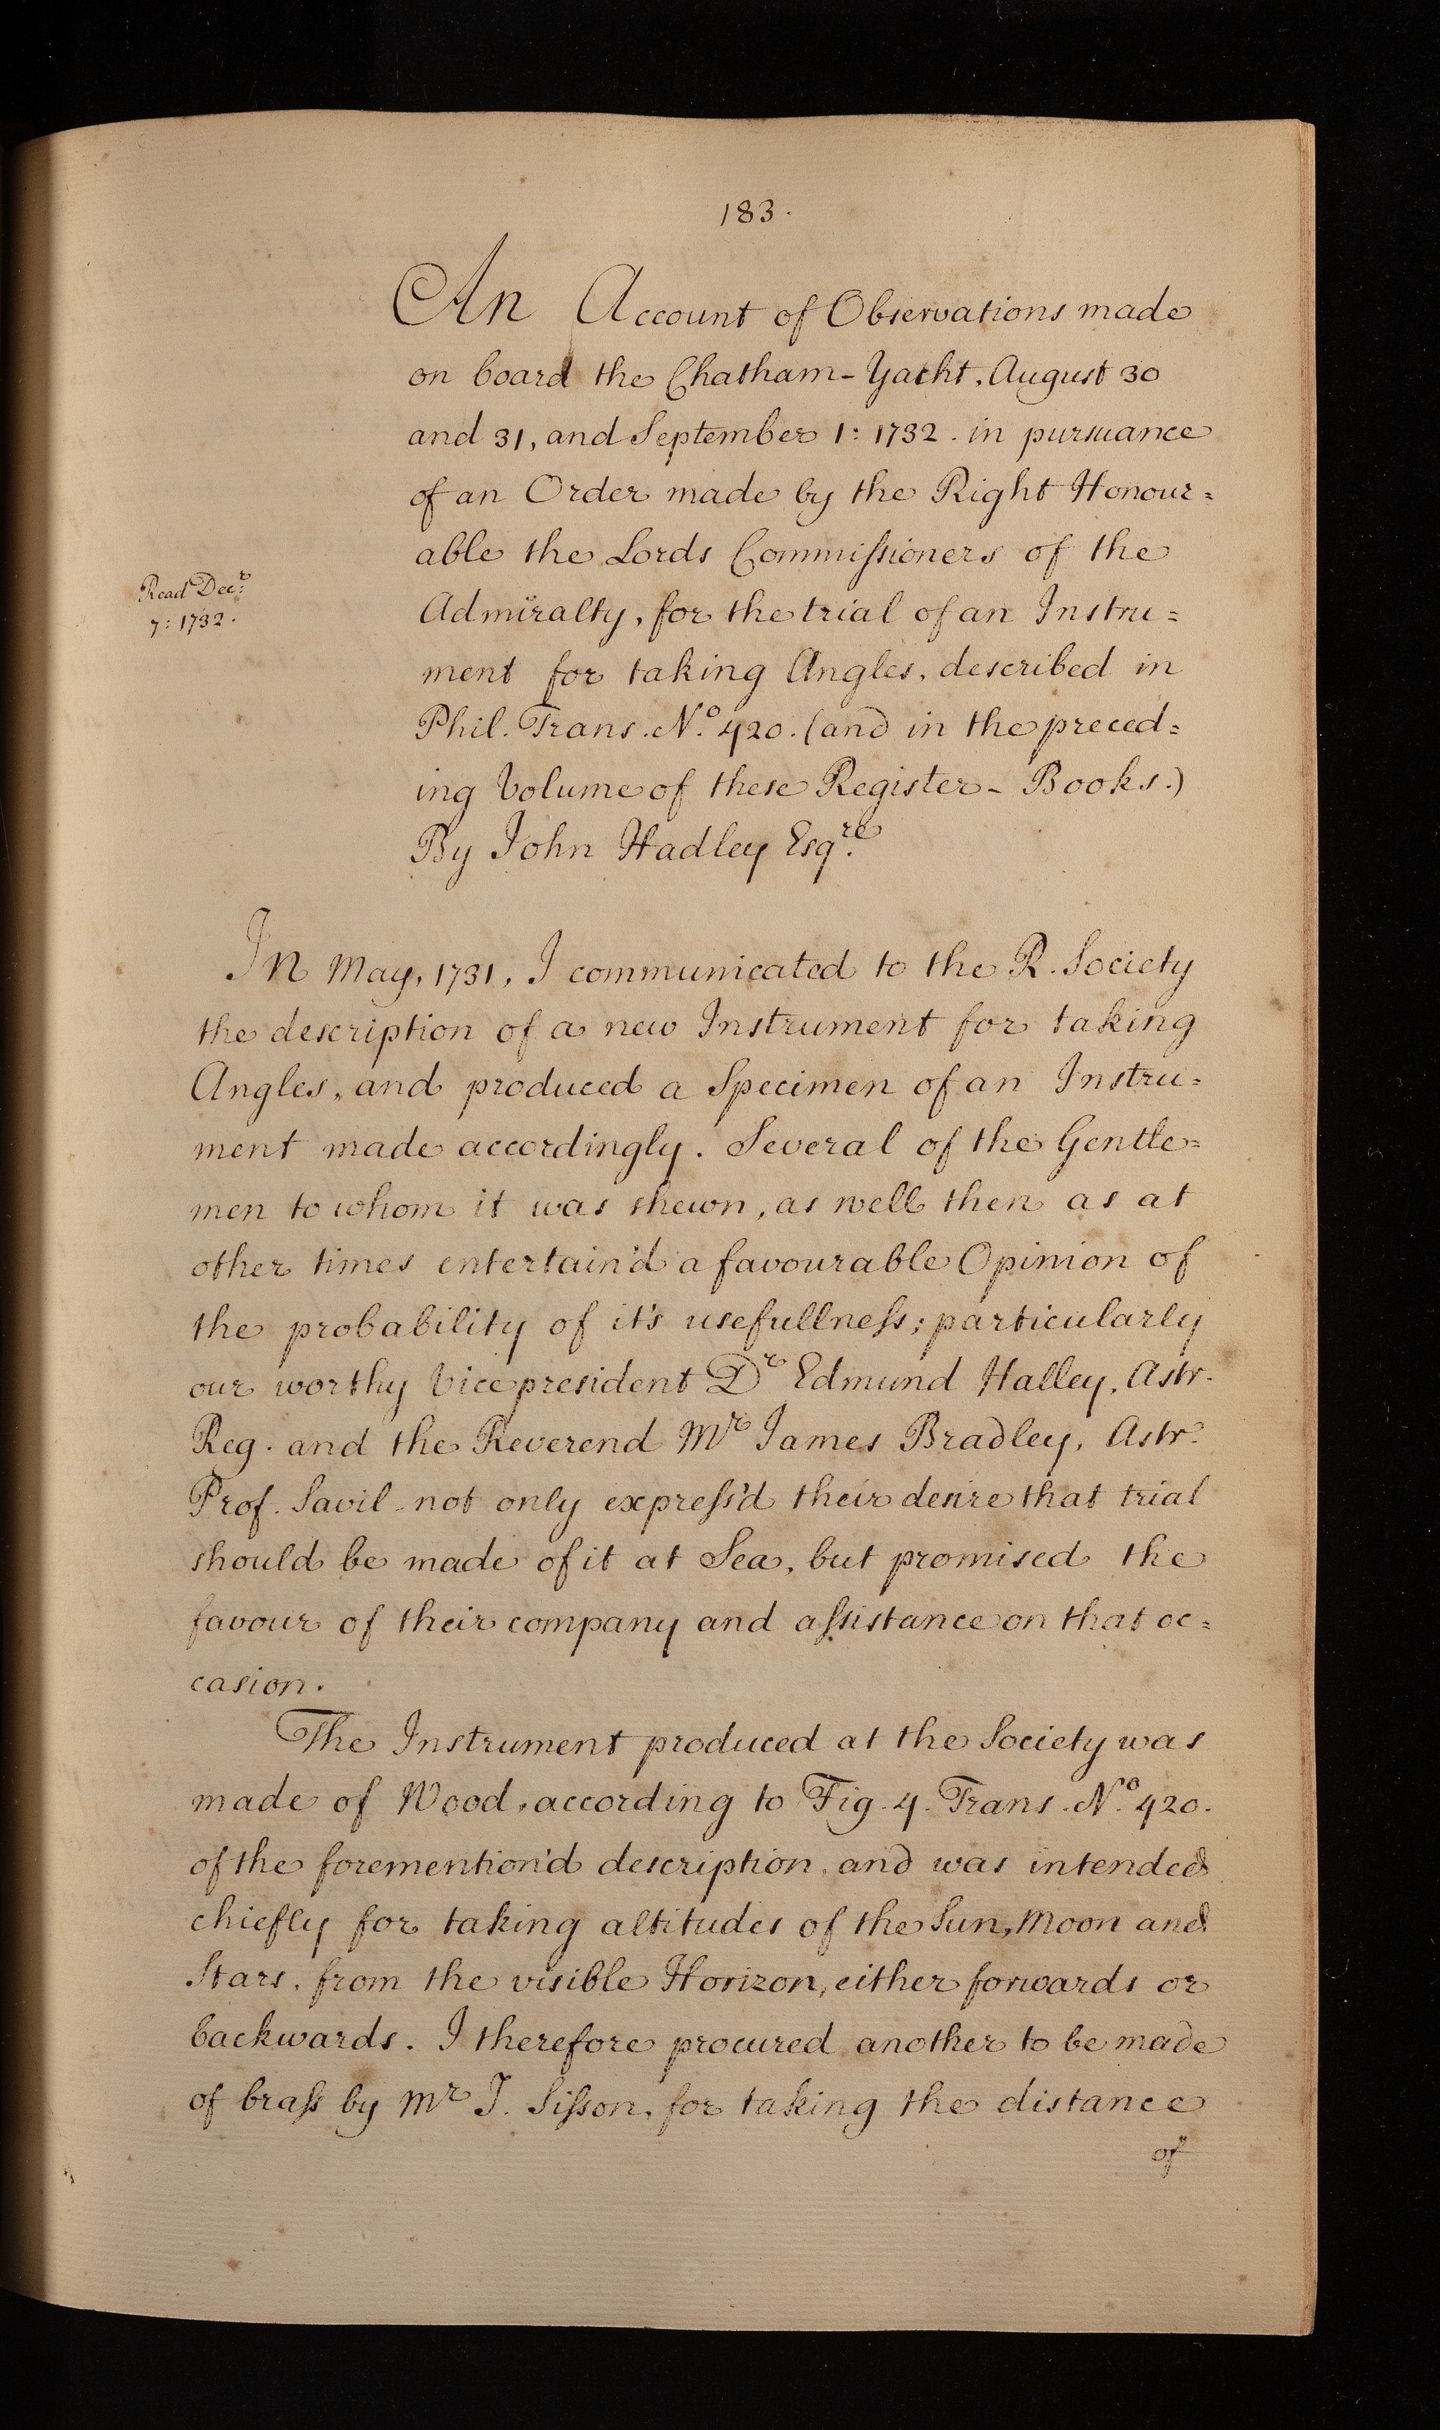 183.
An Account of Observations made
on board the Chatham-Yacht, August 30
and 31, and September 1: 1732. in pursuance
of an Order made by the Right Honour=
able the Lords Commiſsioners of the
Read Decr:
7: 1732.
Admiralty, for the trial of an Instru=
ment for taking Angles, described in
Phil. Trans. No. 420. (and in the preced=
ing Volume of these Register-Books.)
By John Hadley Esqre.
In May, 1731, I communicated to the R. Society
the description of a new Instrument for taking
Angles, and produced a Specimen of an Instru=
ment made accordingly. Several of the Gentle=
men to whom it was shewn, as well then as at
other times entertain'd a favourable Opinion of
the probability of it's usefullneſs; particularly
our worthy Vice president Dr Edmund Halley, Astr.
Reg. and the Reverend Mr James Bradley, Astr.
Prof. Savil. not only expreſs'd their desire that trial
should be made of it at Sea, but promised the
favour of their company and aſsistance on that oc=
casion.
The Instrument produced at the Society was
made of Wood, according to Fig. 4. Trans. No. 420.
of the foremention'd description, and was intended
chiefly for taking altitudes of the Sun, Moon and
Stars, from the visible Horizon, either forwards or
backwards. I therefore procured another to be made
of braſs by Mr J. Siſson, for taking the distance
of